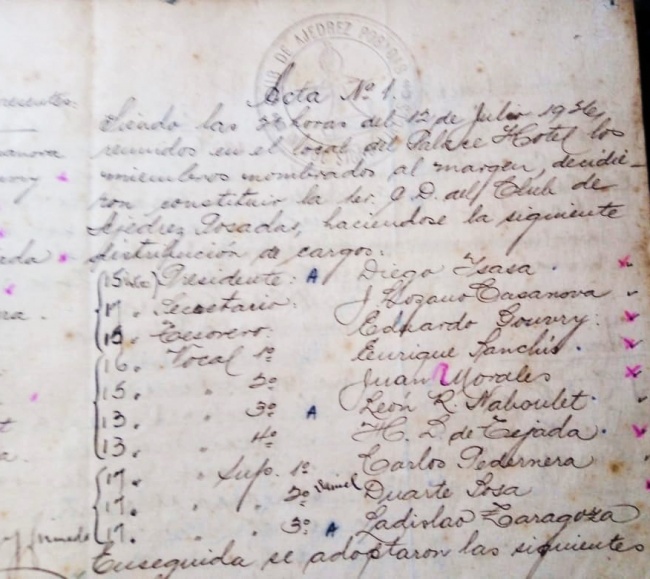 CLUB DE AJEDREZ POSADAS
Acta Nº 1.
Siendo las horas del 12 de Julio 1936,
reunidos en el local del Palace Hotel los
miembros nombrados al margen, decidie-
ron constituir la 1er. C. D. del Club de
Ajedrez Posadas, haciendose la siguiente
distribución de cargos:
15 Presidente: A Diego Isasa.
17. Secretario: J. Lozano Casanova
15. Tesorero: Eduardo Gouvry.
16. Vocal 1º Enrique Sanchis.
15. " 2º Juan Morales
13. " 3º A León R. Naboulet.
13. " 4º H. L. de Tejada.
17. " Sup. 1º Carlos Pedernera
17. " 2º Duarte Sosa
17. " 3º A Ladislao Zaragoza
Enseguida se adoptaron las siguientes